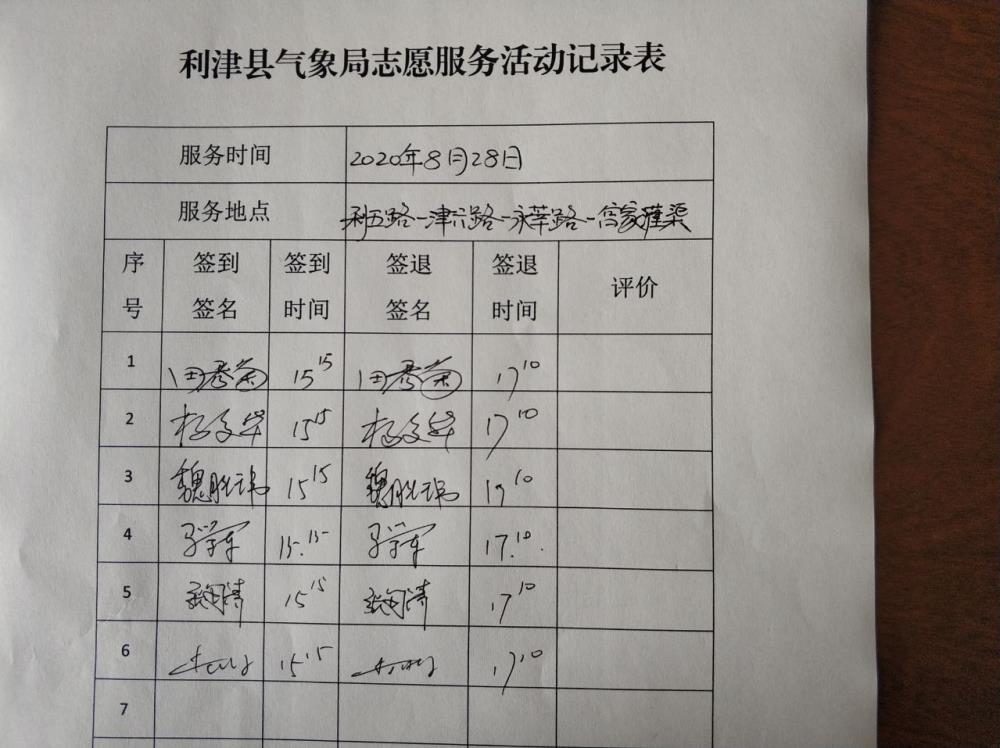 利津县气象局志愿服务活动记录表
服务时间 2020年8月28日
服务地点 利五路-津六路-永莘路-宫家灌渠
序号 签到签名 签到时间 签退签名 签退时间 评价
1 田秀菊 15 15 田秀菊 17 10
2 杨文华 15 15 杨文华 17 10
3 魏胜玮 15 15 魏胜玮 17 10
4 15.15 17.10.
5 15 15 17 10
6 15 15 17 10
7